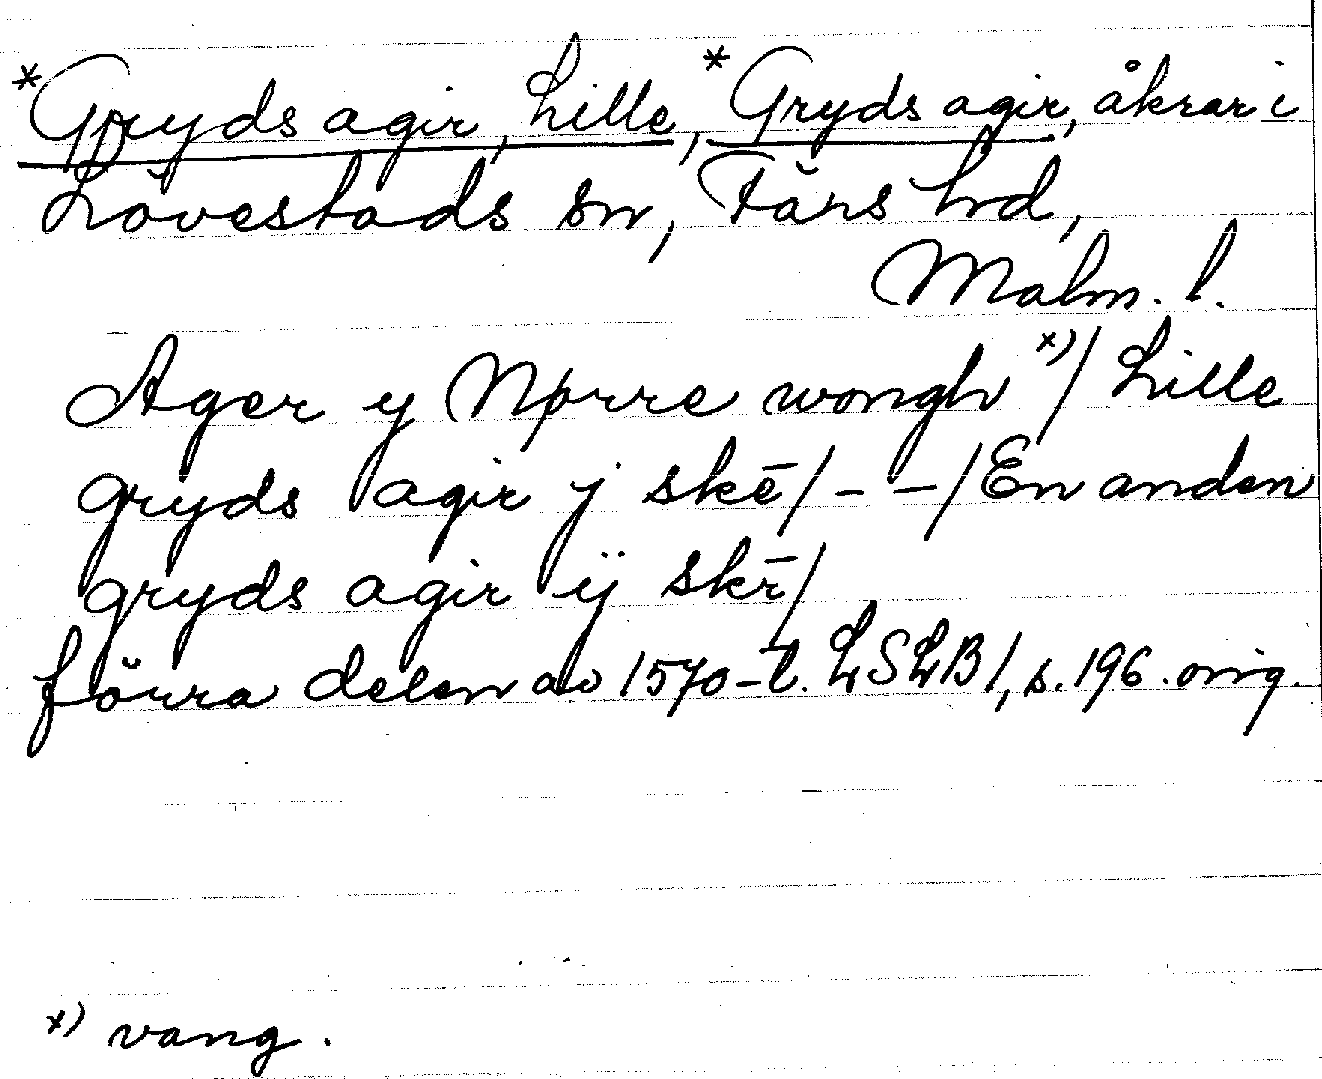 *Gryds agir, Lille, *Gryds agir, åkrar i
Lövestads sn, Färs hd,
Malm. l.
Ager y Nørre wongh x)/ Lille
gryds agir j skē/ – –/ En anden
gryds agir ÿ skē/
förra delen av 1570-t. LSLB 1, s. 196. orig.
x) vang.